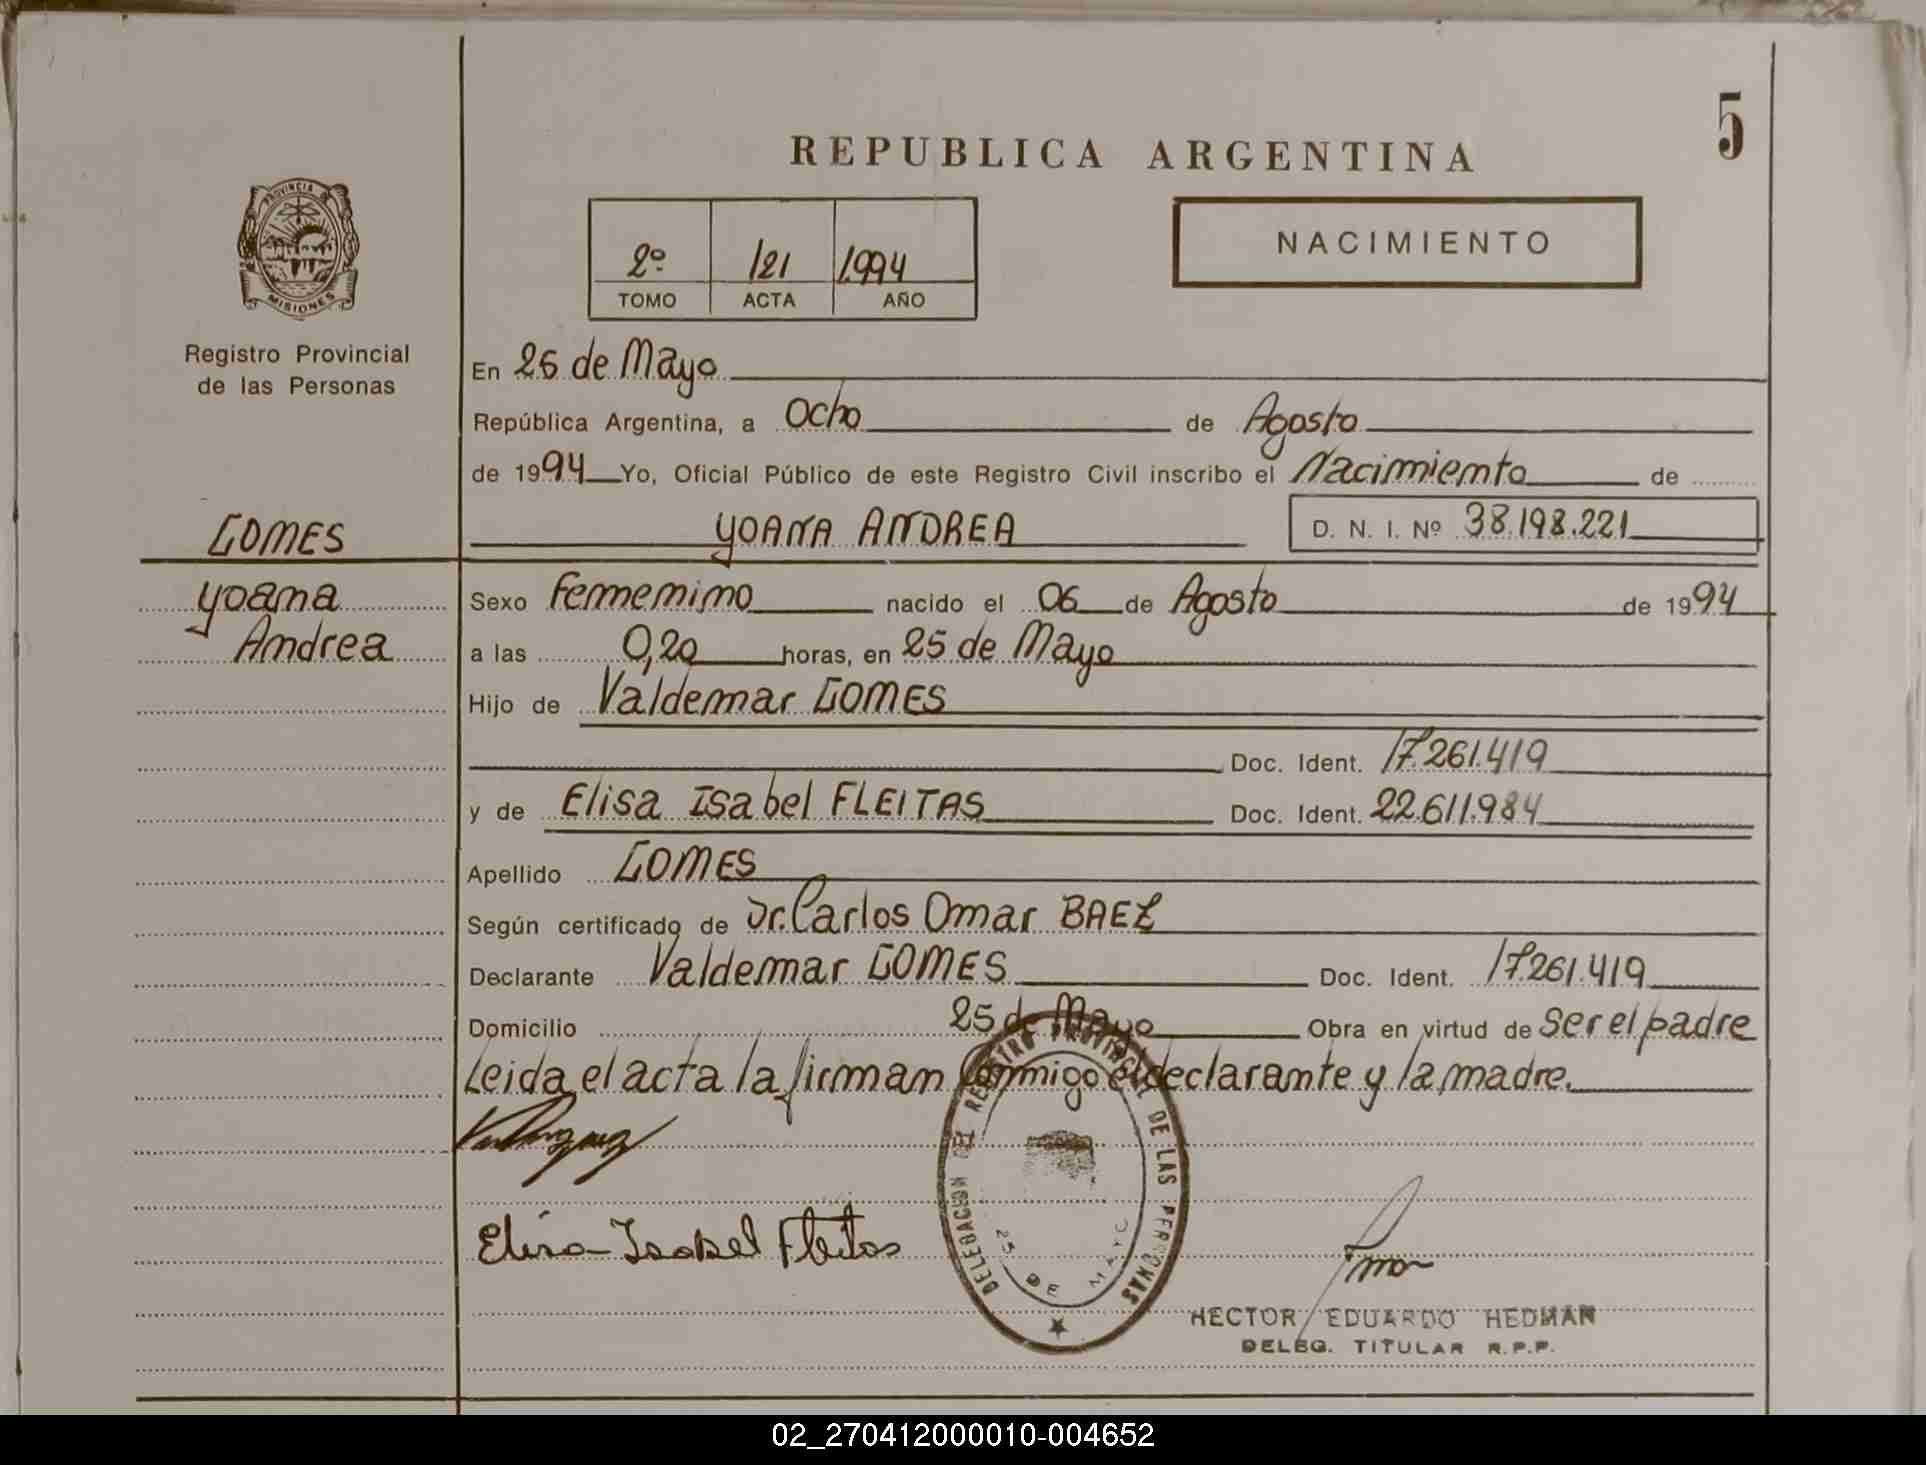 5
REPUBLICA ARGENTINA
PROVINCIA
MISIONES
2º 121 1.994
TOMO ACTA AÑO
NACIMIENTO
Registro Provincial
de las Personas
En 25 de Mayo
República Argentina, a Ocho de Agosto
de 1994 Yo, Oficial Público de este Registro Civil inscribo el Nacimiento de
GOMES YOANA ANDREA D. N. I. Nº 38.198.221
Yoana Sexo Femenino nacido el 06 de Agosto de 1994
Andrea a las 0,20 horas, en 25 de Mayo
Hijo de Valdemar GOMES
Doc. Ident. 17.261.419
y de Elisa Isabel FLEITAS Doc. Ident. 22.611.984
Apellido GOMES
Según certificado de Dr. Carlos Omar BAEZ
Declarante Valdemar GOMES Doc. Ident. 17.261.419
Domicilio 25 de Mayo Obra en virtud de Ser el padre
Leida el acta la firman Conmigo el declarante y la madre.
Elisa Isabel Fleitas
DELEGACION DEL REGISTRO PROVINCIAL DE LAS PERSONAS
25 DE MAYO
HECTOR EDUARDO HEDMAN
DELEG. TITULAR R.P.P.
02_270412000010-004652